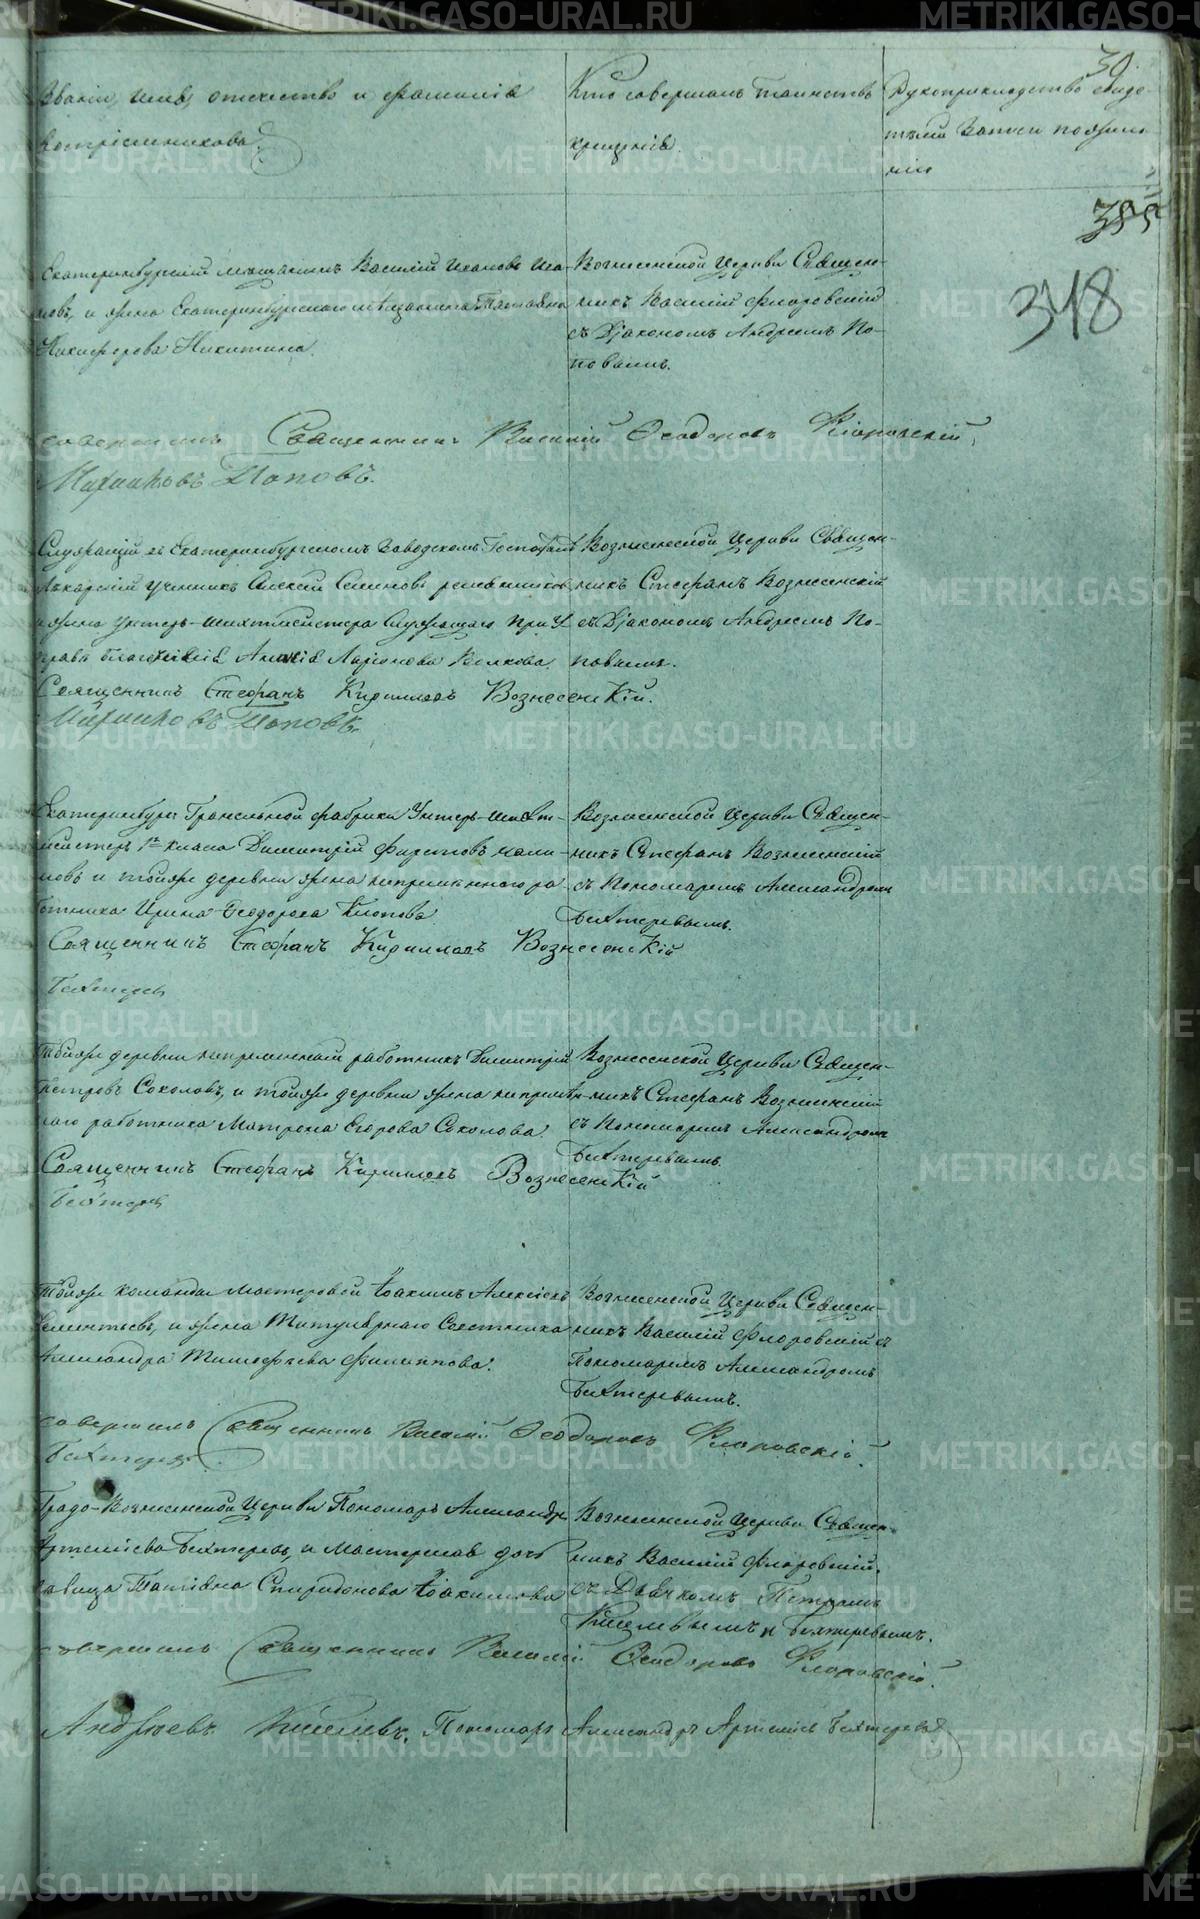 30.
Званіе, имя, отчество и фамилія
воспріемниковъ.
Кто совершалъ таинство
крещенія.
Рукоприкладство свиде-
телей записи по желa-
нію
355
348
Екатеринбургскій мѣщанинъ Василій Ивановъ Ива-
новъ, и жена Екатеринбургскаго мѣщанина Татьяна
Никифорова Никитина.
Вознесенской Церкви Священ-
никъ Василій Флоровскій
съ Діакономъ Андреемъ По-
повымъ.
совершилъ Священникъ Василій Ѳеодоровъ Флоровскій.
Поповъ.
Служащій въ Екатеринбургскомъ Заводскомъ Госпиталѣ
Лекарскій ученикъ Алексей Семеновъ
и жена унтеръ-шихтмейстера служащаго при У-
Ларіонова Волкова.
Вознесенской Церкви Священ-
никъ Стефанъ Вознесенскій
съ Діакономъ Андреемъ По-
повымъ.
Священникъ Стефанъ Кирилловъ Вознесенскій.
Поповъ.
Екатеринбург Гранильной фабрики Унтеръ-шихт-
мейстеръ 1го класа Димитрій Фирсовъ Кали-
новъ и тойже деревни жена непременнаго ра-
ботника Ирина Ѳеодорова Клопова
Вознесенской Церкви Священ-
никъ Стефанъ Вознесенскій
съ Пономаремъ Александромъ
Бехтеревымъ.
Священникъ Стефанъ Кирилловъ Вознесенскій
Бехтеревъ
Тойже деревни непременный работникъ Димитрій
Петровъ Соколовъ, и тойже деревни жена непремѣн-
наго работника Матрена Егорова Соколова.
Вознесенской Церкви Священ-
никъ Стефанъ Вознесенскій
съ Пономаремъ Александромъ
Бехтеревымъ.
Священникъ Стефанъ Кирилловъ Вознесенскій
Бехтеревъ
Тойже команды мастеровой Іоакимъ Алексѣевъ
и жена Титулярнаго Советника
Александра Тимофѣева Филиппова.
Вознесенской Церкви Священ-
никъ Василій Флоровскій съ
Пономаремъ Александромъ
Бехтеревымъ.
совершилъ Священникъ Василій Ѳеодоровъ Флоровскій.
Бехтеревъ.
Градо-Вознесенской Церкви Пономарь Александръ
Артеміевъ Бехтеревъ, и мастерская дочь
девица Татіана Спиридонова Іоакимова
Вознесенской Церкви Священ-
никъ Василій Флоровскій.
съ Дьячкомъ Петромъ
Киселевымъ и Бехтеревымъ.
совершилъ Священникъ Василій Ѳеодоровъ Флоровскій.
Андреевъ Киселевъ. Пономарь Александръ Артеміевъ Бехтеревъ
METRIKI.GASO-URAL.RU